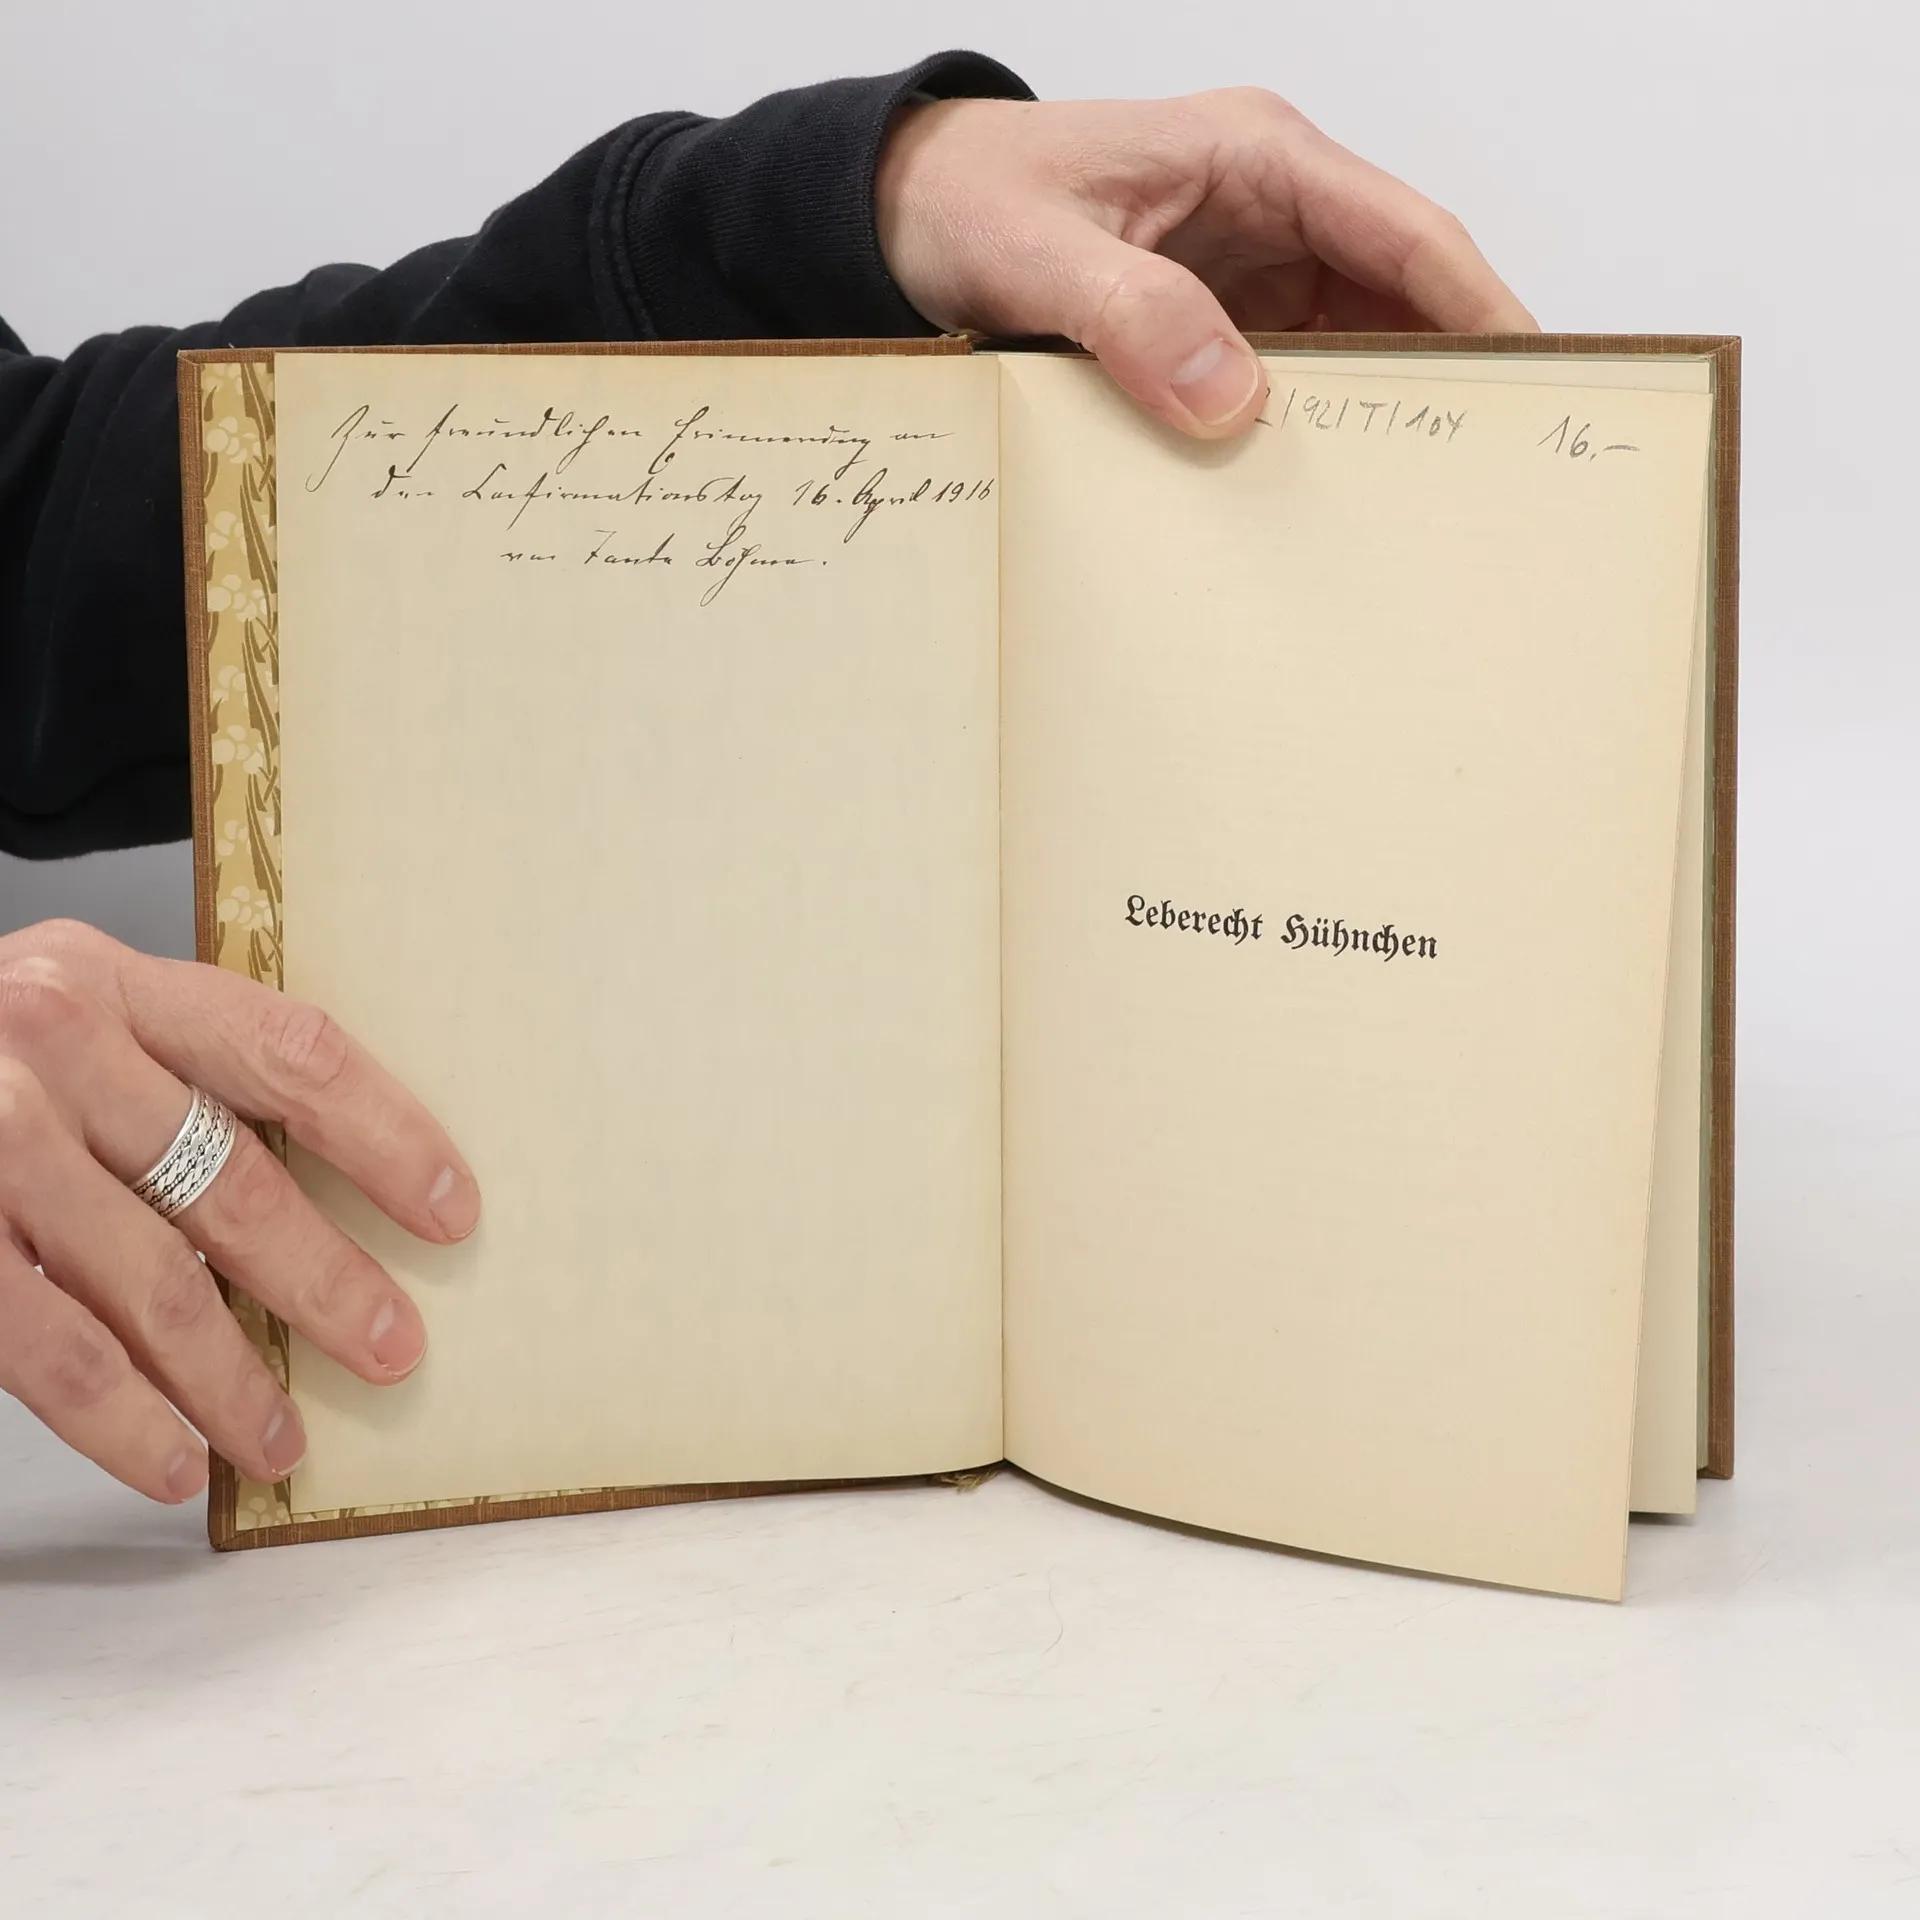 Zur freundlichen Erinnerung an
den Confirmationstag 16. April 1916
von Tante Böhme.
2/92/T/104
16,–
Leberecht Hühnchen